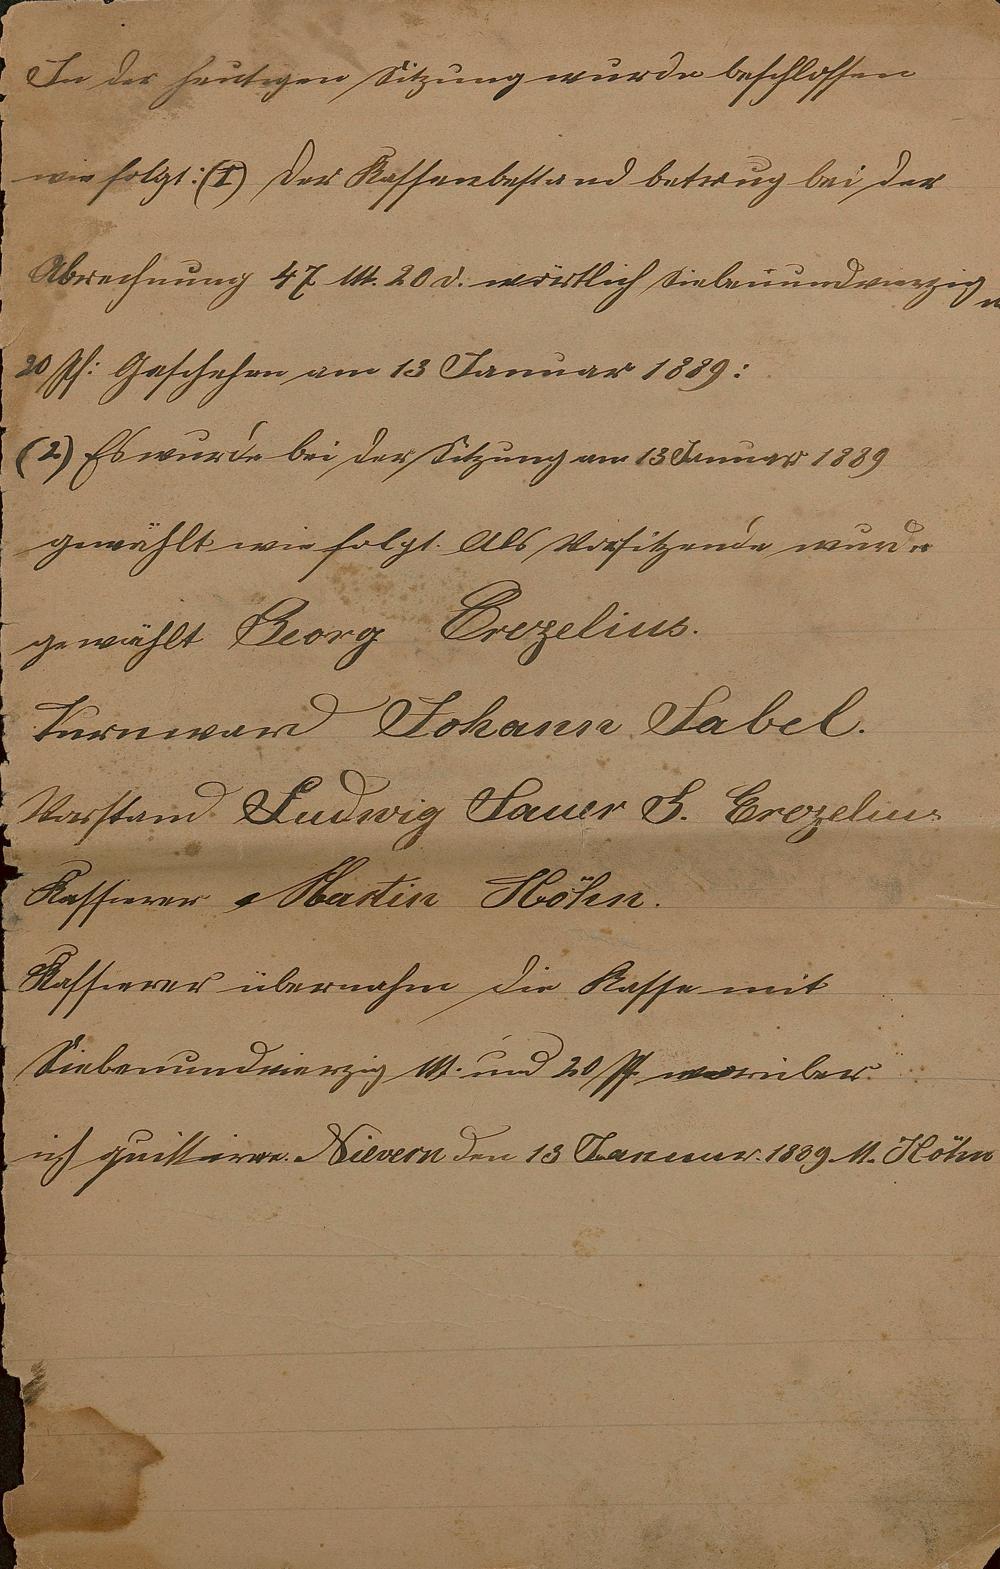 In der heutigen Sitzung wurde beschlossen
wie folgt: (I) Der Kassenbestand betrug bei der
Abrechnung 47 M. 20 d. wörtlich Siebenundvierzig
20 Pf: Geschehen am 13 Januar 1889:
(2) Es wurde bei der Sitzung am 13 Januar 1889
gewählt wie folgt. Als Vorsitzende wurde
gewählt Georg Crezelius.
Turnward Johann Sabel.
Vorstand Ludwig Sauer S. Crezelius
Kassierer Martin Höhn.
Kassierer übernahm die Kasse mit
Siebenundvierzig M. und 20 Pf. worüber
ich quittirre. Nievern den 13 Januar. 1889 M. Höhn